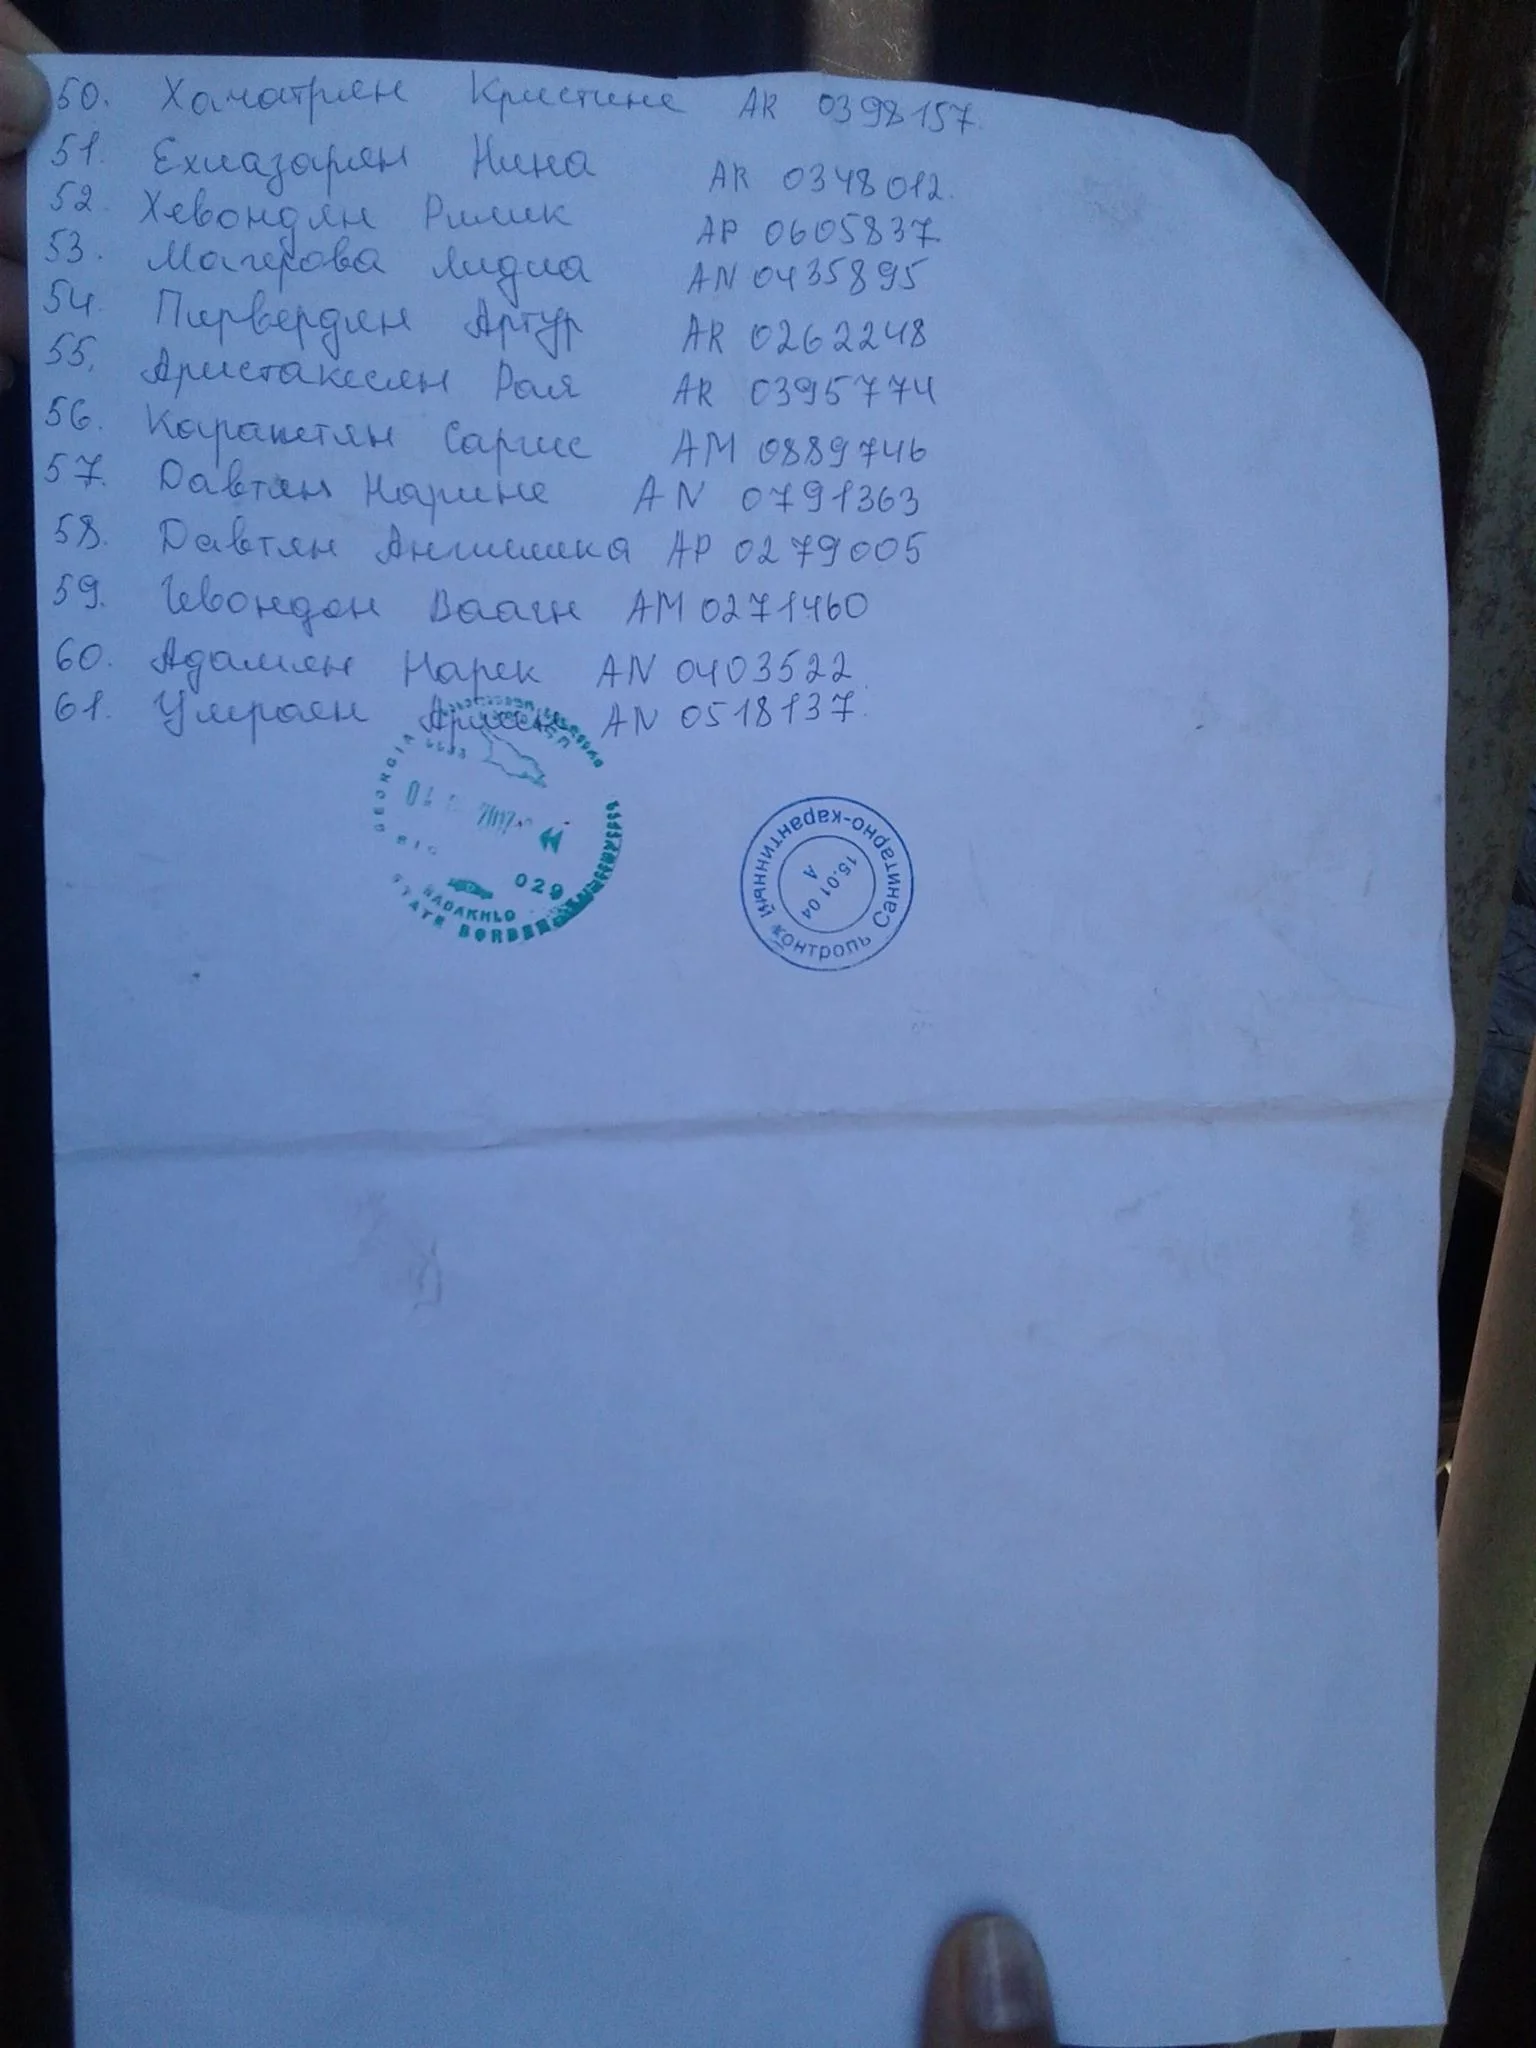 50. Хачатрян Кристине AR 0398157.
51. Ехиазарян Нина AR 0348012.
52. Хевондян Римик AP 0605837
53. Магерова Лидиа AN 0435895
54. Пирвердян Артур AR 0262248
55. Аристакесян Рая AR 0395774
56. Карапетян Саргис AM 0889746
57. Давтян Нарине AN 0791363
58. Давтян Анжелика AP 0279005
59. Гевондян Ваагн AM 0271460
60. Адамян Нарек AN 0403522
61. Умроян AN 0518137.
GEORGIA
029
SADAKHLO
STATE BORDER
Санитарно-карантинный контроль
15.01 04
А